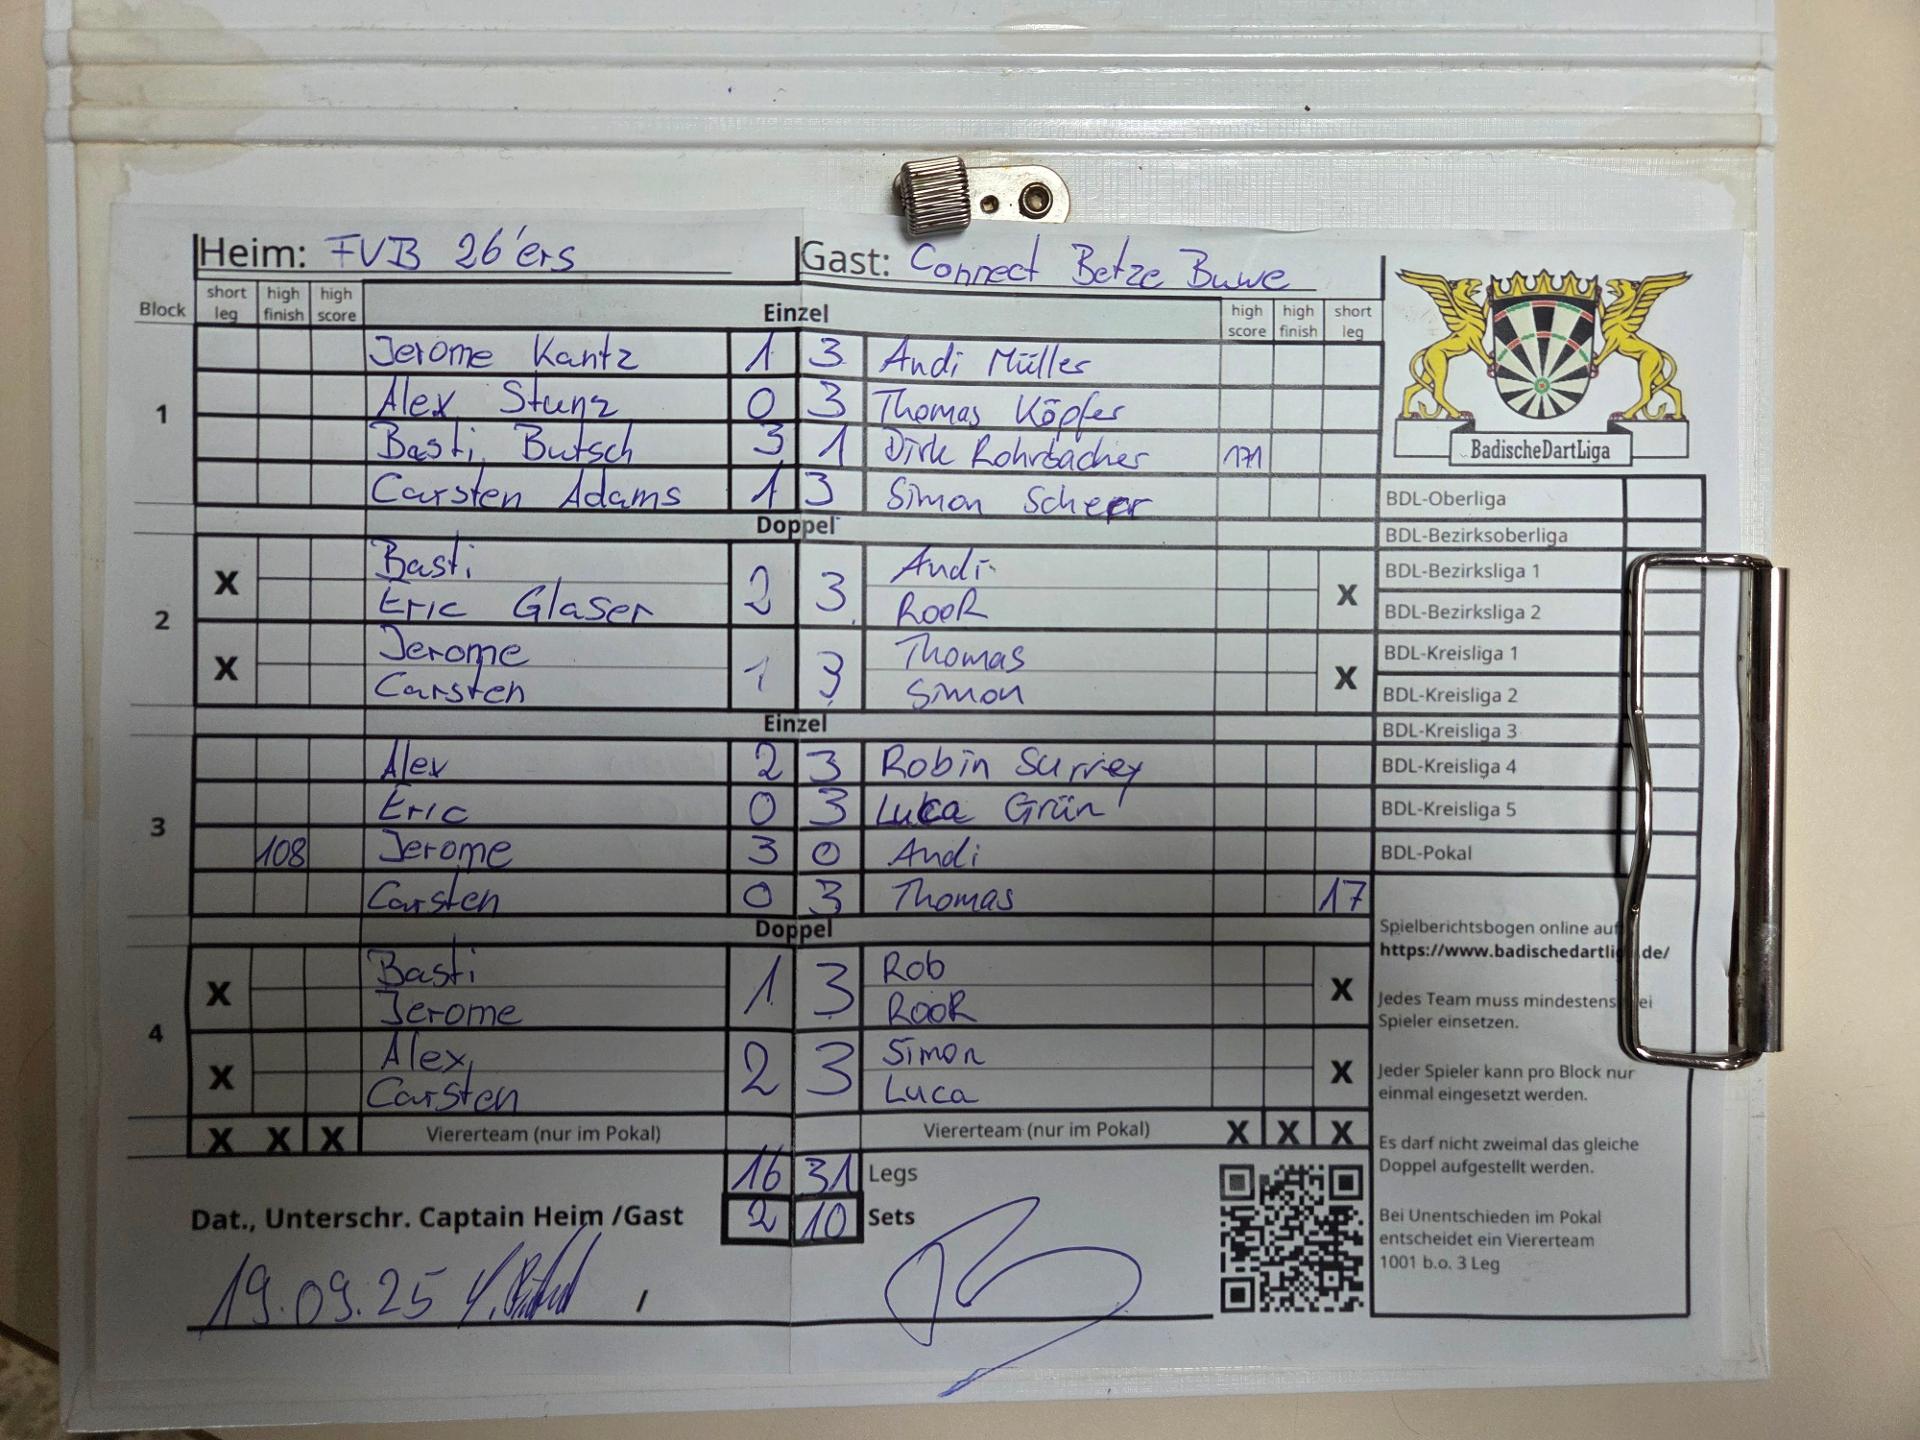 Heim: FVB 26'ers Gast: Connect Betze Buwe
Block short leg high finish high score Einzel high score high finish short leg
1
Jerome Kantz 1 3 Andi Müller
Alex Stunz 0 3 Thomas Köpfer
Basti Butsch 3 1 Dirk Rohrbacher 171
Carsten Adams 1 3 Simon Scherr
Doppel
2
X Basti 2 3 Andi X
Eric Glaser RooR
X Jerome 1 3 Thomas X
Carsten Simon
Einzel
3
Alex 2 3 Robin Surrey
Eric 0 3 Luca Grün
108 Jerome 3 0 Andi
Carsten 0 3 Thomas 17
Doppel
4
X Basti 1 3 Rob X
Jerome RooR
X Alex 2 3 Simon X
Carsten Luca
X X X Viererteam (nur im Pokal) Viererteam (nur im Pokal) X X X
16 31 Legs
Dat., Unterschr. Captain Heim /Gast 2 10 Sets
19.09.25 /
BadischeDartLiga
BDL-Oberliga
BDL-Bezirksoberliga
BDL-Bezirksliga 1
BDL-Bezirksliga 2
BDL-Kreisliga 1
BDL-Kreisliga 2
BDL-Kreisliga 3
BDL-Kreisliga 4
BDL-Kreisliga 5
BDL-Pokal
Spielberichtsbogen online auf
https://www.badischedartlig.de/
Jedes Team muss mindestens
Spieler einsetzen.
Jeder Spieler kann pro Block nur
einmal eingesetzt werden.
Es darf nicht zweimal das gleiche
Doppel aufgestellt werden.
Bei Unentschieden im Pokal
entscheidet ein Viererteam
1001 b.o. 3 Leg